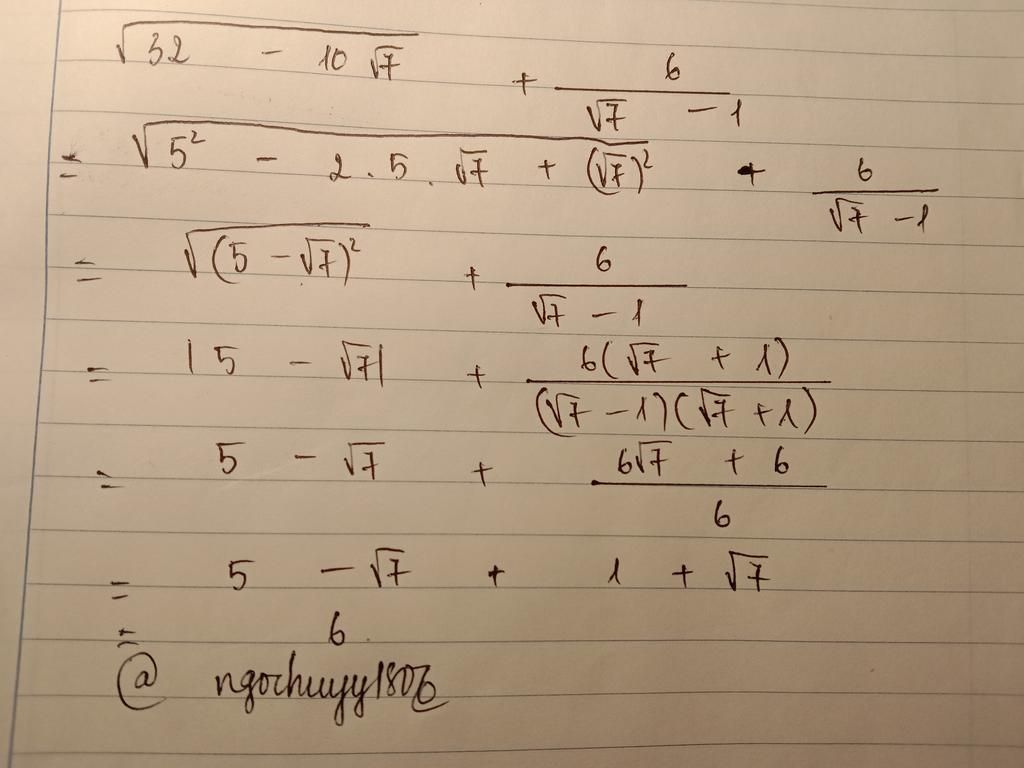 √(32 - 10√7) + 6/(√7 - 1)
= √(5² - 2 . 5 . √7 + (√7)²) + 6/(√7 - 1)
= √((5 - √7)²) + 6/(√7 - 1)
= |5 - √7| + 6(√7 + 1)/((√7 - 1)(√7 + 1))
= 5 - √7 + (6√7 + 6)/6
= 5 - √7 + 1 + √7
= 6.
@ngochuyy1806